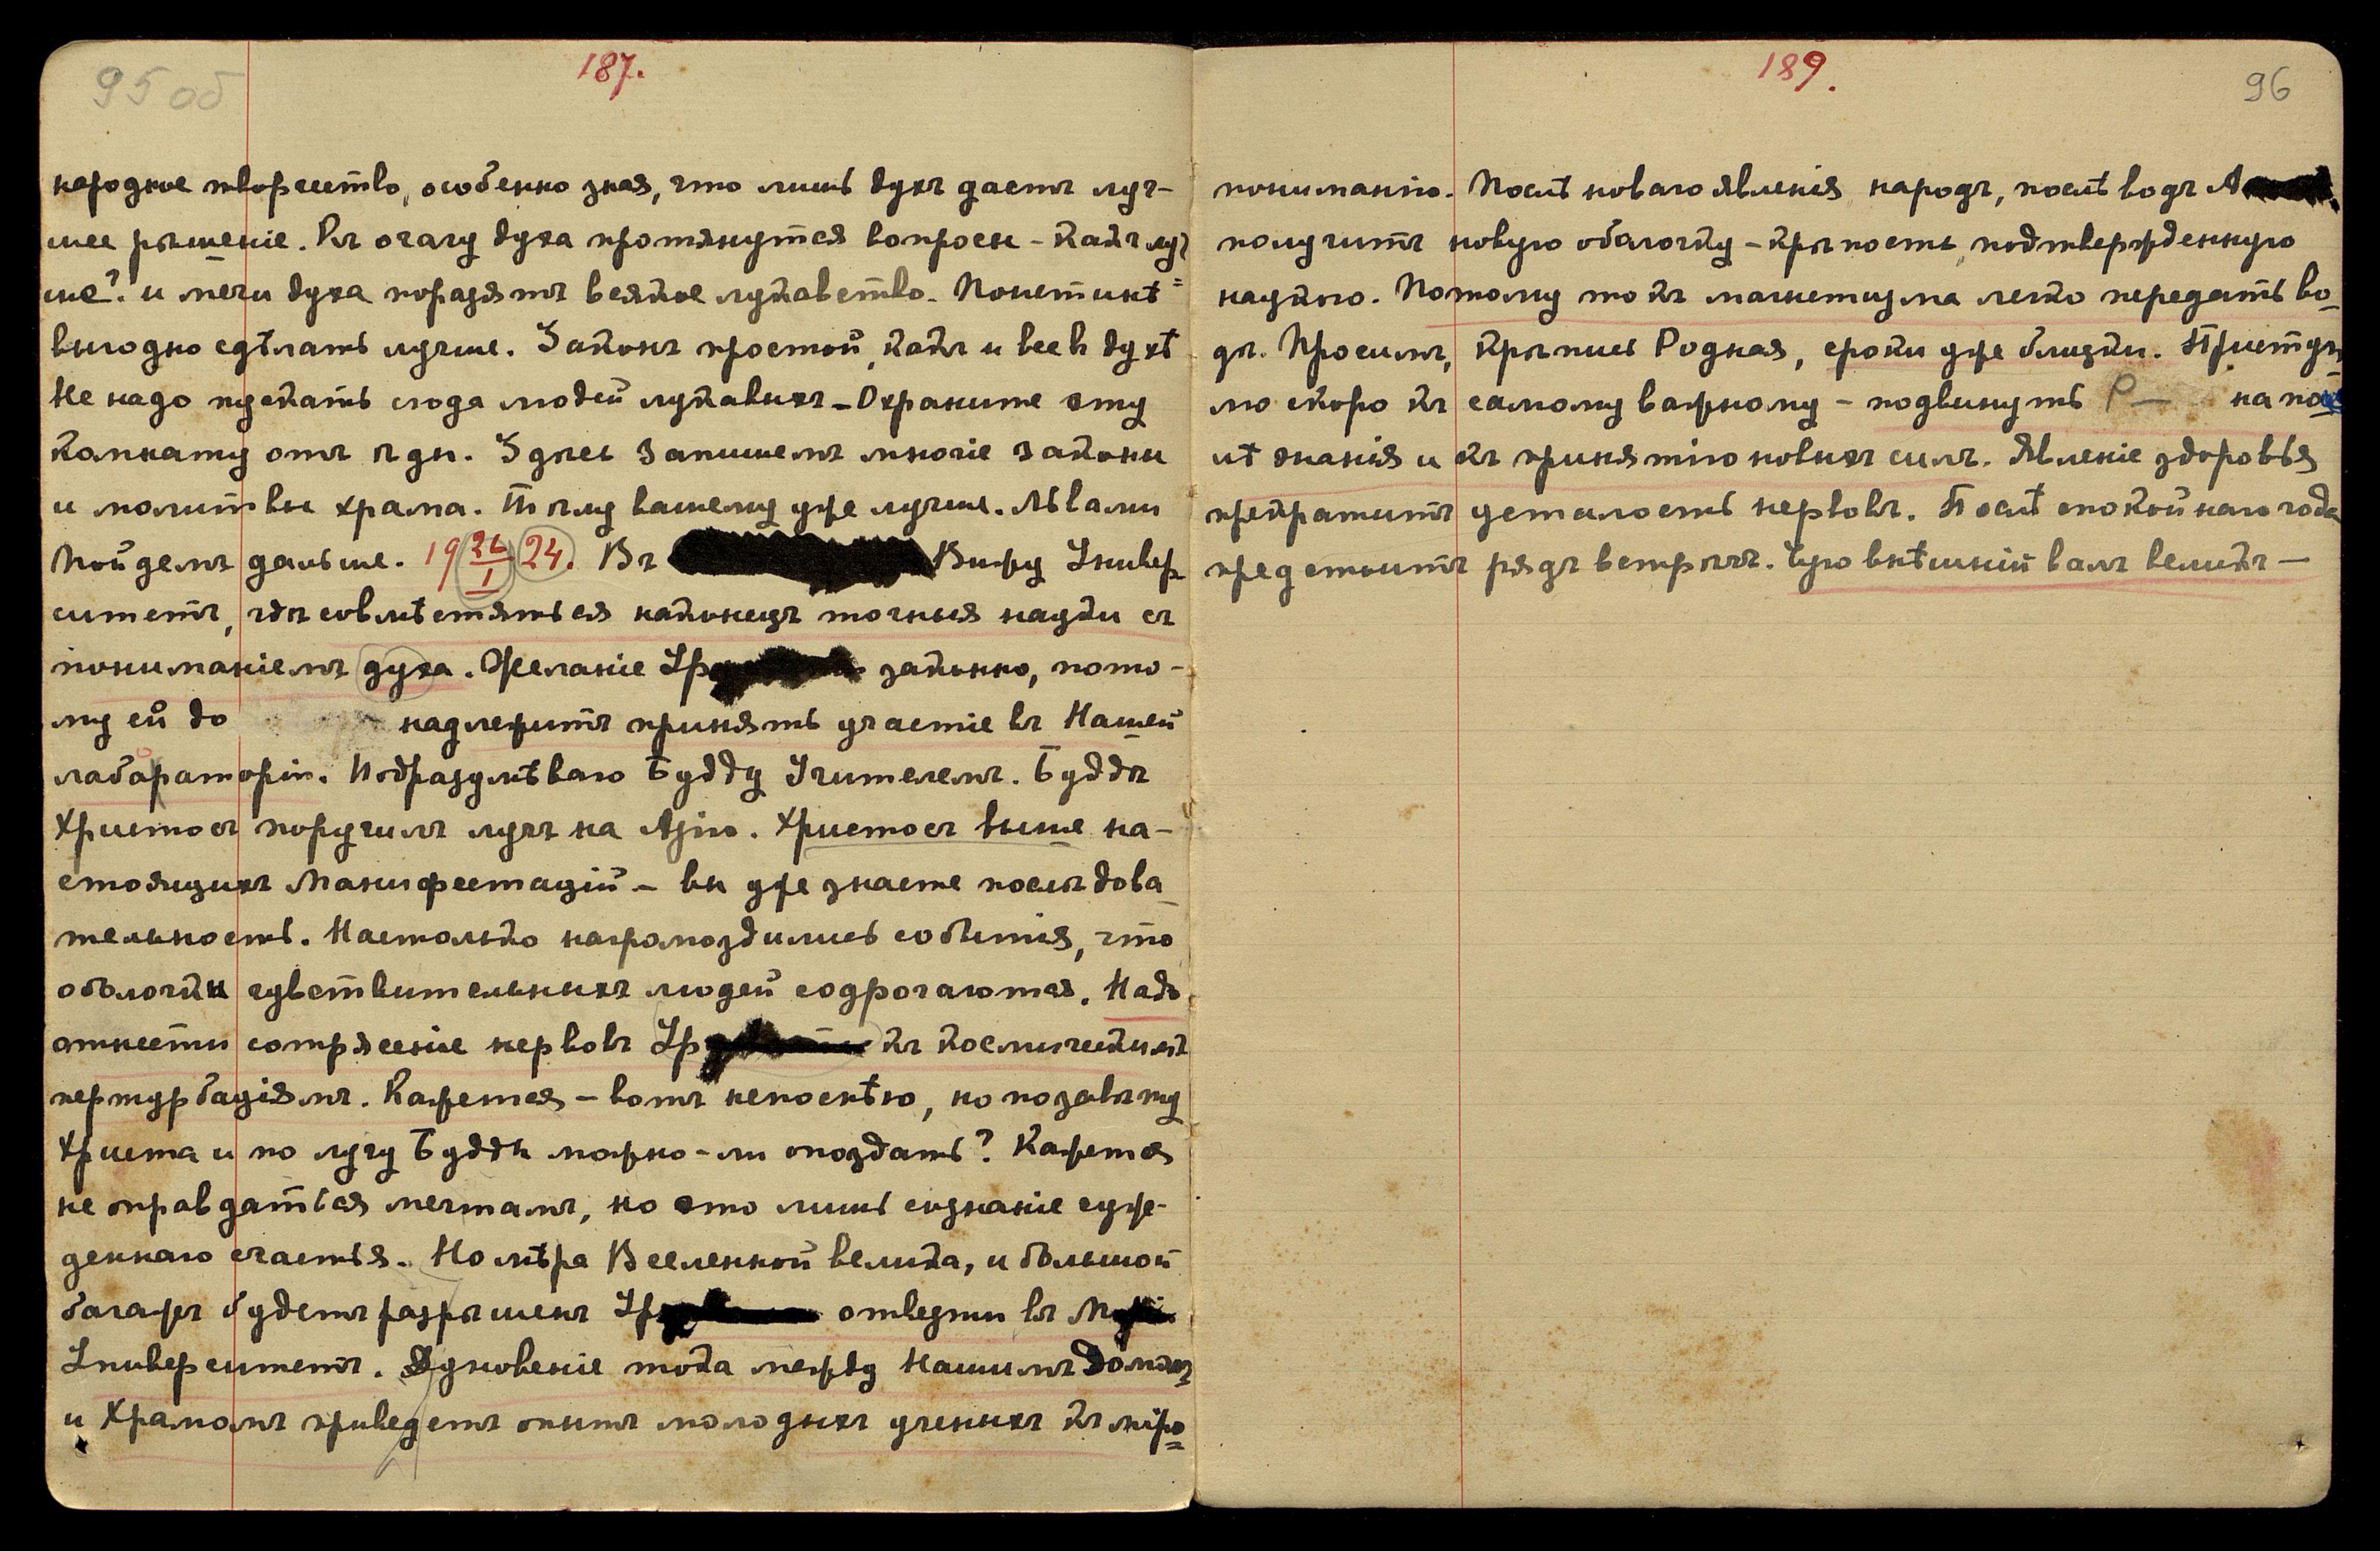 95 об
187.
народное творчество, особенно зная, что лишь духъ даетъ луч-
шее рѣшеніе. Къ очагу духа протянутся вопросы - какъ луч
ше? и мечи духа поразятъ всякое лукавство. Поистинѣ=
выгодно сдѣлать лучше. Законъ простой, какъ и все в духѣ
Не надо пускать сюда людей лукавыхъ - Охраните эту
комнату отъ яды. Здѣсь запишемъ многіе законы
и молитвы храма. Тѣлу вашему уже лучше. Львами
Пойдемъ дальше. 19 26/I 24. Въ Вижу Универ
ситетъ, гдѣ совмѣстятся наконецъ точныя науки съ
пониманіемъ духа. Желаніе Ур законно, пото-
му ей до надлежитъ принять участіе въ Нашей
лабараторіи. Подразумѣваю Будду Учителемъ. Буддѣ
Христосъ поручилъ лучъ на Азію. Христосъ выше на-
стоящихъ Манифестацій - вы уже знаете послѣдова-
тельность. Настолько нагромоздились событія, что
оболочки чувствительныхъ людей содрогаются. Надо
отнести сотрясеніе нервовъ Ур къ космическимъ
пертурбаціямъ. Кажется - вотъ непоспѣю, но по завѣту
Христа и по лучу Будды можно-ли опоздать? Кажется
не оправдаться мечтамъ, но это лишь сознаніе суж-
деннаго счастья. Но мѣра Вселенной велика, и большой
багажъ будетъ разрѣшенъ Ур отвезти въ М
Университетъ. Дуновеніе тока между Нашимъ Домомъ
и Храмомъ приведетъ опытъ молодыхъ ученыхъ къ міро=
189.
96
пониманію. Послѣ новаго явленія народъ, послѣ водъ А
получитъ новую оболочку - крѣпость, подтвержденную
наукою. Потому токъ магнетизма легко передать во-
дѣ. Просимъ, крѣпись Родная, сроки уже близки. Приступ
мо скоро къ самому важному - подвинуть Р— на по
лѣ знанія и къ принятію новыхъ силъ. Явленіе здоровья
прекратитъ усталость нервовъ. Послѣ спокойнаго года
предстоитъ рядъ встрѣчъ. Чую внѣшній валъ великъ —